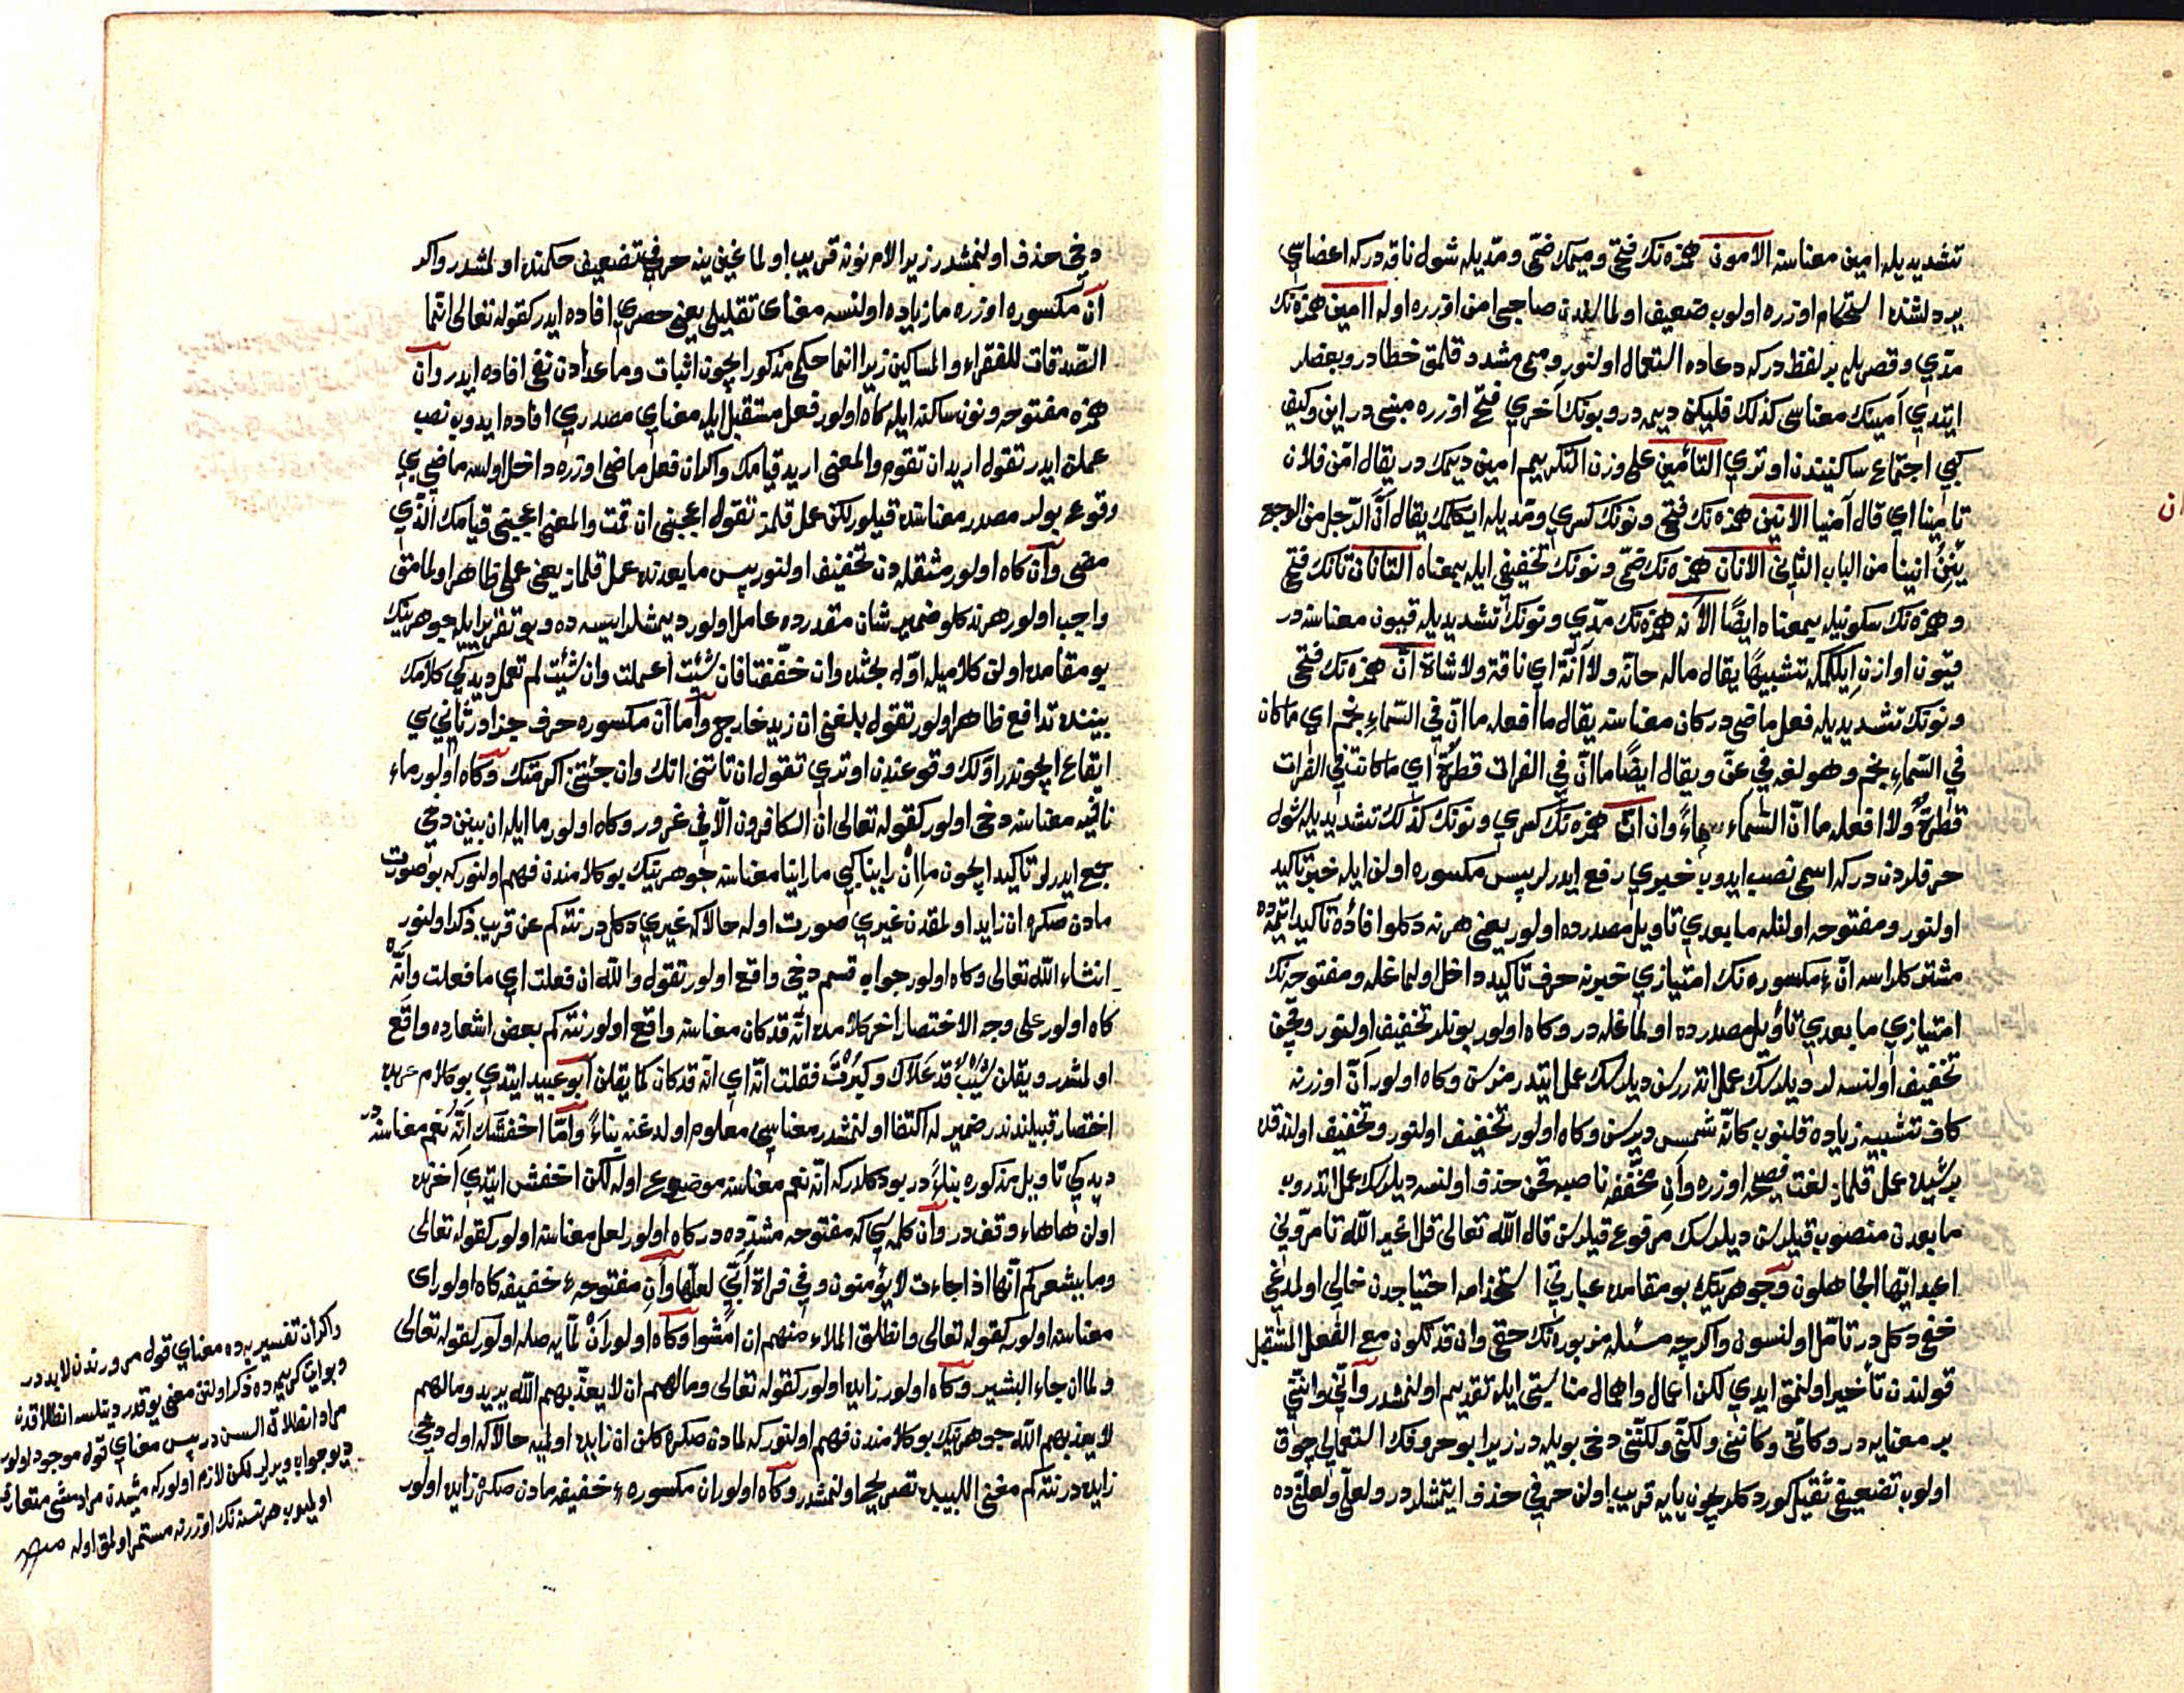 تشديديله امين معناسنه الامون همزه نك فتحى وميمك ضمّى ومدّيله شول ناقه دركه اعضاسى
بردلشنده استحكام اوزره اولوب ضعيف اولمالغدن صاحبى امن اوزره اوله اامين همزه نك
مدّى وقصريله بر لفظ دركه دعاده استعمال اولنور وميمى مشدد قلمق خطادر وبعضلر
ايتدى آمينك معناسى كذلك فليكن ديمه در وبونك آخرى فتح اوزره مبنى در اين وكيف
كبى اجتماع ساكنيندن اوترى التأمين على وزن التكريم امين ديمك در يقال امّن فلان
تامينا اى قال آمنيا الانين همزه نك فتحى ونونك كسرى ومدّيله ايكلمك يقال اَنَّ الرّجل من الوجع
يَئِنُّ انينا من الباب الثانى الانان همزه نك ضمّى ونونك تخفيفى ايله بمعناه التانان تانك فتحى
وهمزه نك سكونيله بمعناه ايضًا الآنه همزه نك مدّى ونونك تشديديله قيون معناسنه در
قيون اوازن ايكلمكه تشبيها يقال ماله حانّة ولا آنّة اى ناقة ولا شاة اَنَّ همزه نك فتحى
ونونك تشديديله فعل ماضى در كان معناسنه يقال ما افعله ما انّ فى السّماءِ نجم اى ما كان
فى السّماءِ نجم وهو لغه فى عنّ ويقال ايضًا ما انّ فى الفرات قطرةٌ اى ما كانت فى الفرات
قطرةٌ ولا افعله ما انّ السّماء سماءً وان انّ همزه نك كسرى ونونك كذلك تشديديله شول
حرفلردن دركه اسمى نصب ايدوب خبرى رفع ايدرلر پس مكسوره اولن ايله خبر تاكيد
اولنور ومفتوحه اولنله مابعدى تاويل مصدرده اولور يعنى هرنه دكلو افاده تاكيد ايتمده
مشترك كلراسه انّ ء مكسوره نك امتيازى خبرنه حرف تاكيد داخل اولماغله ومفتوحه نك
امتيازى مابعدى تأويل مصدرده اولماغله در وكاه اولور بونلر تخفيف اولنور وچون
تخفيف اولنسه لر ديلرسك عمل ايتدررسن ديلرسك عمل ايتدرمزسن وكاه اولور اَنَّ اوزرنه
كاف تشبيه زياده قلنوب كانّه شمس ديرسن وكاه اولور تخفيف اولنور وتخفيف اولندقده
برشيده عمل قلماز لغت فصيحه اوزره واَنِ مخفّفه ناصبه چن حذف اولنسه ديلرسك عمل ايتدروب
مابعدن منصوب قيلرسن ديلرسك مرفوع قيلرسن قال الله تعالى قل افغير الله تامرونى
اعبد ايّها الجاهلون وجوهرينك بو مقامده عبارتى استخدامه احتياجدن خالى اولمدغى
خفى دكل در تامّل اولنسون واكرچه مسئله مزبوره نك حتى وان قد تكون مع الفعل المستقبل
قولندن تأخير اولنمق ايدى لكن اعمال واهمال مناسبتى ايله تقديم اولنمشدر وانّى وانّنى
بر معنايه در وكانّى وكاننى ولكنّى ولكنّنى دخى بويله در زيرا بو حروفك استعمالى چوق
اولوب تضعيفى ثقيل كوردكلريچون يايه قريب اولن حرفى حذف ايتمشلردر ولعلّى ولعلّنى ده
دخى حذف اولنمشدر زيرا لام نونه قريب اولماغين ينه حرفى تضعيف حكمنده اولمشدر واكر
انّ مكسوره اوزره ما زياده اولنسه معناى تقليلى يعنى حصرى افاده ايدر كقوله تعالى انّما
الصّدقات للفقراء والمساكين زيرا انما حكمى مذكور ايچون اثبات وماعدادن نفى افاده ايدر واَن
همزه مفتوحه ونون ساكنه ايله كاه اولور فعل مستقبل ايله معناى مصدرى افاده ايدوب نصب
عملن ايدر تقول اريد ان تقوم والمعنى اريد قيامك واكر ان فعل ماضى اوزره داخل اولسه ماضى يى
وقوع بولر مصدر معناسنده قيلور لكن عمل قلمز تقول اعجبنى ان قمت والمعنى اعجبنى قيامك الّذى
مضى واَن كاه اولور مثقله دن تخفيف اولنور پس مابعدنده عمل قلماز يعنى على ظاهر اولمامق
واجب اولور هر نه كلو ضمير شان مقدرده عامل اولور ديمشلر ايسه ده وبو تقرير ايله جوهرينك
بو مقامده اولن كلاميله اوّل بحثده وان خفّفتا فان شئت اعملت وان شئت لم تعمل ديدكى كلامك
بيننده تدافع ظاهر اولور تقول بلغنى ان زيد خارج وامّا ان مكسوره حرف جزادر ثانى يى
ايقاع ايچوندر اوّلك وقوعندن اوترى تقول ان تاتنى آتك وان جئتنى اكرمتك وكاه اولور ماء
نافيه معناسنه دخى اولور كقوله تعالى ان الكافرون الّا فى غرور وكاه اولور ما ايله ان بينن دخى
جمع ايدرلر تاكيد ايچون ما اِنْ راينا كبى ما راينا معناسنه جوهرينك بو كلامندن فهم اولنوركه بو صورت
مادن صكره ان زايد اولمقدن غيرى صورت اوله حالانكه غيرى دكل در نته كم عن قريب ذكر اولنور
انشاء الله تعالى وكاه اولور جواب قسم دخى واقع اولور تقول والله ان فعلت اى ما فعلت وانّه
كاه اولور على وجه الاختصار اخر كلامده انّه قد كان معناسنه واقع اولور نته كم بعض اشعارده واقع
اولمشدر ويقلن شيبٌ قد علاك وكبرت فقلت انّه اى انّه قد كان كما يقلن ابو عبيد ايتدى بو كلام عربده
اختصار قبيلندندر ضمير له اكتفا اولنمشدر معناسى معلوم اولدغنه بناءً وامّا اخفشك انّه نعم معناسنه در
ديدكى تاويل مذكوره بناءً در يوخسه دكلدركه انّه نعم معناسنه موضوع اوله لكن اخفش ايتدى آخرنده
اولن هاء وقف در واَن كلمه سى كه مفتوحه مشدّده در كاه اولور لعل معناسنه اولور كقوله تعالى
وما يشعركم انّها اذا جاءت لا يؤمنون وفى قراة اُبَىّ لعلّها واَن مفتوحه ء خفيفه كاه اولور اى
معناسنه اولور كقوله تعالى وانطلق الملاء منهم ان امشوا وكاه اولور اَنْ لمّايه صله اولور كقوله تعالى
ولما ان جاء البشير وكاه اولور زايده اولور كقوله تعالى ومالهم ان لا يعذّبهم الله يريد ومالهم
لا يعذبهم الله جوهرينك بو كلامندن فهم اولنوركه لمادن صكره كلن ان زايده اولميه حالانكه اول دخى
زايده در نته كم مغنى اللبيبده تصريح اولنمشدر وكاه اولور ان مكسوره ء خفيفه مادن صكره زايده اولور
واكر ان تفسيريه ده معناى قول مرورندن لابددر
وبو ايت كريمه ده ذكر اولنن معنى يوقدر دينلسه انطلاقدن
مراد انطلاق السن در پس معناى قول موجود اولور
ديو جواب ويرلر لكن لازم اولوركه مشيدن مراد مشى متعارف
اولميوب هر نسنه نك اوزرنه مستمر اولمق اوله
ان